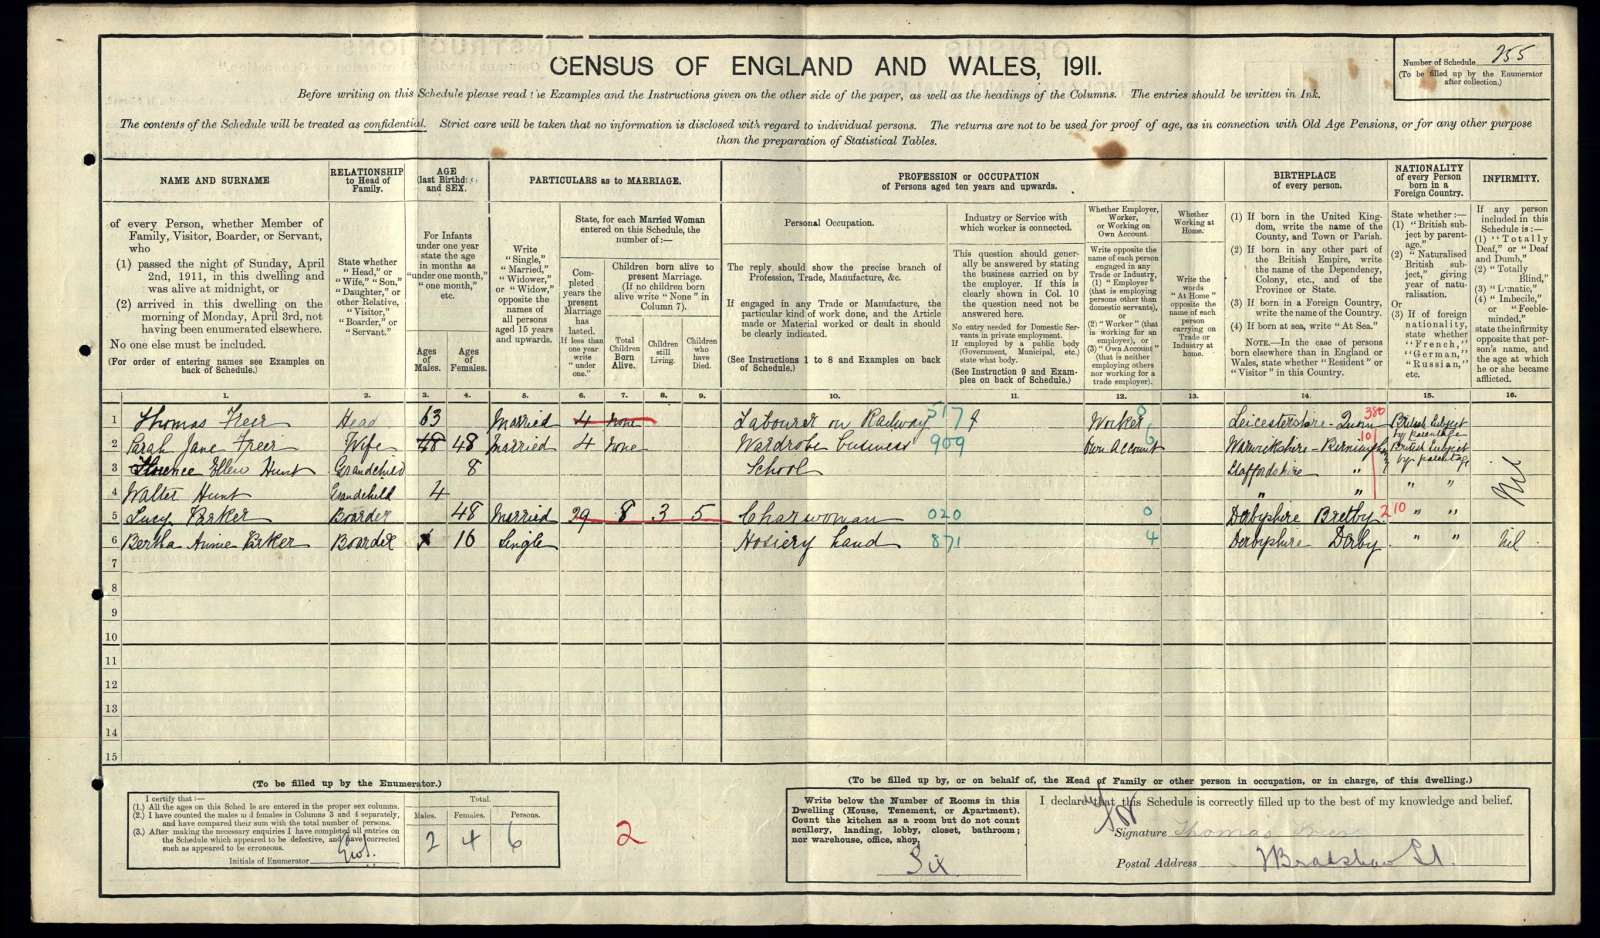 CENSUS OF ENGLAND AND WALES, 1911.
Number of Schedule 255
(To be filled up by the Enumerator after collection.)
Before writing on this Schedule please read the Examples and the Instructions given on the other side of the paper, as well as the headings of the Columns. The entries should be written in Ink.
The contents of the Schedule will be treated as confidential. Strict care will be taken that no information is disclosed with regard to individual persons. The returns are not to be used for proof of age, as in connection with Old Age Pensions, or for any other purpose
than the preparation of Statistical Tables.
NAME AND SURNAME
of every Person, whether Member of
Family, Visitor, Boarder, or Servant,
who
(1) passed the night of Sunday, April
2nd, 1911, in this dwelling and
was alive at midnight, or
(2) arrived in this dwelling on the
morning of Monday, April 3rd, not
having been enumerated elsewhere.
No one else must be included.
(For order of entering names see Examples on
back of Schedule.)
RELATIONSHIP
to Head of
Family.
State whether
"Head," or
"Wife," "Son,"
"Daughter," or
other Relative,
"Visitor,"
"Boarder," or
"Servant."
AGE
(last Birthd
and SEX.
For Infants
under one year
state the age
in months as
"under one month,"
"one month,"
etc.
Ages
of
Males.
Ages
of
Females.
PARTICULARS as to MARRIAGE.
Write
"Single,"
"Married,"
"Widower,"
or "Widow,"
opposite the
names of
all persons
aged 15 years
and upwards.
State, for each Married Woman
entered on this Schedule, the
number of:—
Completed
years the
present
Marriage
has
lasted.
If less than
one year
write
"under
one."
Children born alive to
present Marriage.
(If no children born
alive write "None" in
Column 7).
Total
Children
Born
Alive.
Children
still
Living.
Children
who
have
Died.
PROFESSION or OCCUPATION
of Persons aged ten years and upwards.
Personal Occupation.
The reply should show the precise branch of
Profession, Trade, Manufacture, &c.
If engaged in any Trade or Manufacture, the
particular kind of work done, and the Article
made or Material worked or dealt in should
be clearly indicated.
(See Instructions 1 to 8 and Examples on back
of Schedule.)
Industry or Service with
which worker is connected.
This question should generally
be answered by stating
the business carried on by
the employer. If this is
clearly shown in Col. 10
the question need not be
answered here.
No entry needed for Domestic Servants
in private employment.
If employed by a public body
(Government, Municipal, etc.)
state what body.
(See Instruction 9 and Examples
on back of Schedule.)
Whether Employer,
Worker,
or Working on
Own Account.
Write opposite the
name of each person
engaged in any
Trade or Industry,
(1) "Employer"
(that is employing
persons other than
domestic servants),
or
(2) "Worker" (that
is working for an
employer), or
(3) "Own Account"
(that is neither
employing others
nor working for a
trade employer).
Whether
Working at
Home.
Write the
words
"At Home"
opposite the
name of each
person
carrying on
Trade or
Industry at
home.
BIRTHPLACE
of every person.
(1) If born in the United Kingdom,
write the name of the
County, and Town or Parish.
(2) If born in any other part of
the British Empire, write
the name of the Dependency,
Colony, etc., and of the
Province or State.
(3) If born in a Foreign Country,
write the name of the Country.
(4) If born at sea, write "At Sea."
NOTE.—In the case of persons
born elsewhere than in England or
Wales, state whether "Resident" or
"Visitor" in this Country.
NATIONALITY
of every Person
born in a
Foreign Country.
State whether:—
(1) "British subject
by parentage,"
(2) "Naturalised
British subject,"
giving
year of naturalisation.
Or
(3) If of foreign
nationality,
state whether
"French,"
"German,"
"Russian,"
etc.
INFIRMITY.
If any person
included in this
Schedule is:—
(1) "Totally
Deaf," or "Deaf
and Dumb,"
(2) "Totally
Blind,"
(3) "Lunatic,"
(4) "Imbecile,"
or "Feeble-
minded,"
state the infirmity
opposite that person's
name, and
the age at which
he or she became
afflicted.
1. 2. 3. 4. 5. 6. 7. 8. 9. 10. 11. 12. 13. 14. 15. 16.
1 Thomas Freer Head 63 Married 4 none Labourer on Railway 517 Worker Leicestershire - 380 British Subject by Parentage
2 Sarah Jane Freer Wife 48 48 Married 4 none Wardrobe business 909 Own Account Warwickshire - Birmingham British Subject by parentage
3 Florence Ellen Hunt Grandchild 8 School Staffordshire " " "
4 Walter Hunt Grandchild 4 " " Nil
5 Lucy Parker Boarder 48 Married 29 8 3 5 Charwoman 020 0 Derbyshire Bretby 210 " "
6 Bertha Annie Parker Boarder 16 Single Hosiery hand 871 4 Derbyshire Derby " " Nil
7
8
9
10
11
12
13
14
15
(To be filled up by the Enumerator.)
I certify that:—
(1.) All the ages on this Sched le are entered in the proper sex columns.
(2.) I have counted the males and females in Columns 3 and 4 separately,
and have compared their sum with the total number of persons.
(3.) After making the necessary enquiries I have completed all entries on
the Schedule which appeared to be defective, and have corrected
such as appeared to be erroneous.
Initials of Enumerator
Total.
Males. Females. Persons.
2 4 6
2
(To be filled up by, or on behalf of, the Head of Family or other person in occupation, or in charge, of this dwelling.)
Write below the Number of Rooms in this
Dwelling (House, Tenement, or Apartment).
Count the kitchen as a room but do not count
scullery, landing, lobby, closet, bathroom;
nor warehouse, office, shop.
Six
I declare that this Schedule is correctly filled up to the best of my knowledge and belief.
Signature Thomas Freer
Postal Address Bradshaw St.